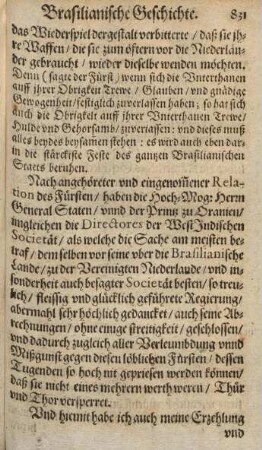 Brasilianische Geschichte. 831
das Wiederspiel dergestalt verbitterte / daß sie jh-
re Waffen / die sie zum öftern vor die Niederlän-
der gebraucht / wieder dieselbe wenden möchten.
Denn (sagte der Fürst) wenn sich die Unterthanen
auff ihrer Obrigkeit Trew / Glauben / und gnädige
Gewogenheit / festiglich zuverlassen haben; so hat sich
auch die Obrigkeit auff ihrer Unterthanen Trewe /
Hulde und Gehorsamb / zuverlassen: und dieses muß
alles beydes beysamen stehen: es wird auch eben dar-
in die stärckiste Feste des gantzen Brasilianischen
Staets beruhen.
Nach angehöreter und eingenom̃ener Rela-
tion des Fürsten / haben die Hoch-Mog: Herrn
General Staten / vnnd der Printz zu Oranien /
ungleichen die Directores der West Jndischen
Societät / als welche die Sache am meisten be-
traf / dem selben vor seine uber die Brasilianische
Lande / zu der Vereinigten Niederlande / vnd in-
sonderheit auch besagter Societät besten / so treu-
lich / fleissig vnd glücklich geführete Regierung /
abermahl sehr höchlich gedancket / auch seine Ab-
rechnungen / ohne einige streitigkeit / geschlossen /
vnd dadurch zugleich aller Verleumbdung vnnd
Mißgunst gegen diesen löblichen Fürsten / dessen
Tugenden so hoch nit gepriesen werden können /
daß sie nicht eines mehrern werth weren / Thür
vnd Thor versperret.
Vnd hiemit habe ich auch meine Erzehlung
vnd